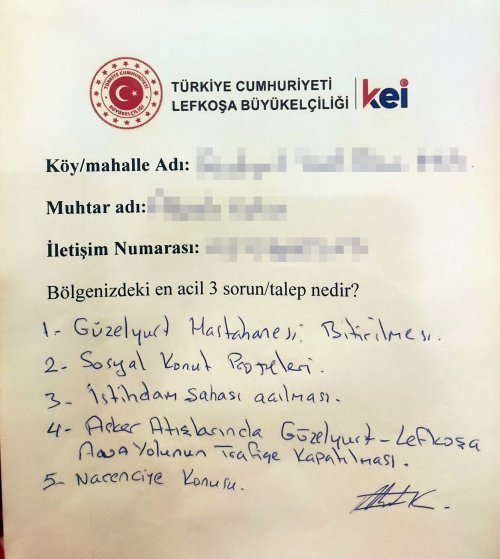 TÜRKİYE CUMHURİYETİ
LEFKOŞA BÜYÜKELÇİLİĞİ
kei
Köy/mahalle Adı:
Muhtar adı:
İletişim Numarası:
Bölgenizdeki en acil 3 sorun/talep nedir?
1- Güzelyurt Hastahanesi Bitirilmesi.
2- Sosyal Konut Projeleri.
3- İstihdam Sahası açılması.
4- Asker Atışlarında Güzelyurt-Lefkoşa
Ana Yolunun Trafiğe Kapatılması.
5- Narenciye Konusu.